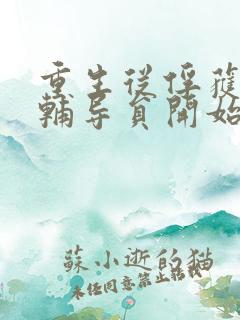 重生從俘獲
輔导員開始
蘇小逝的猫
未經同意禁止轉載